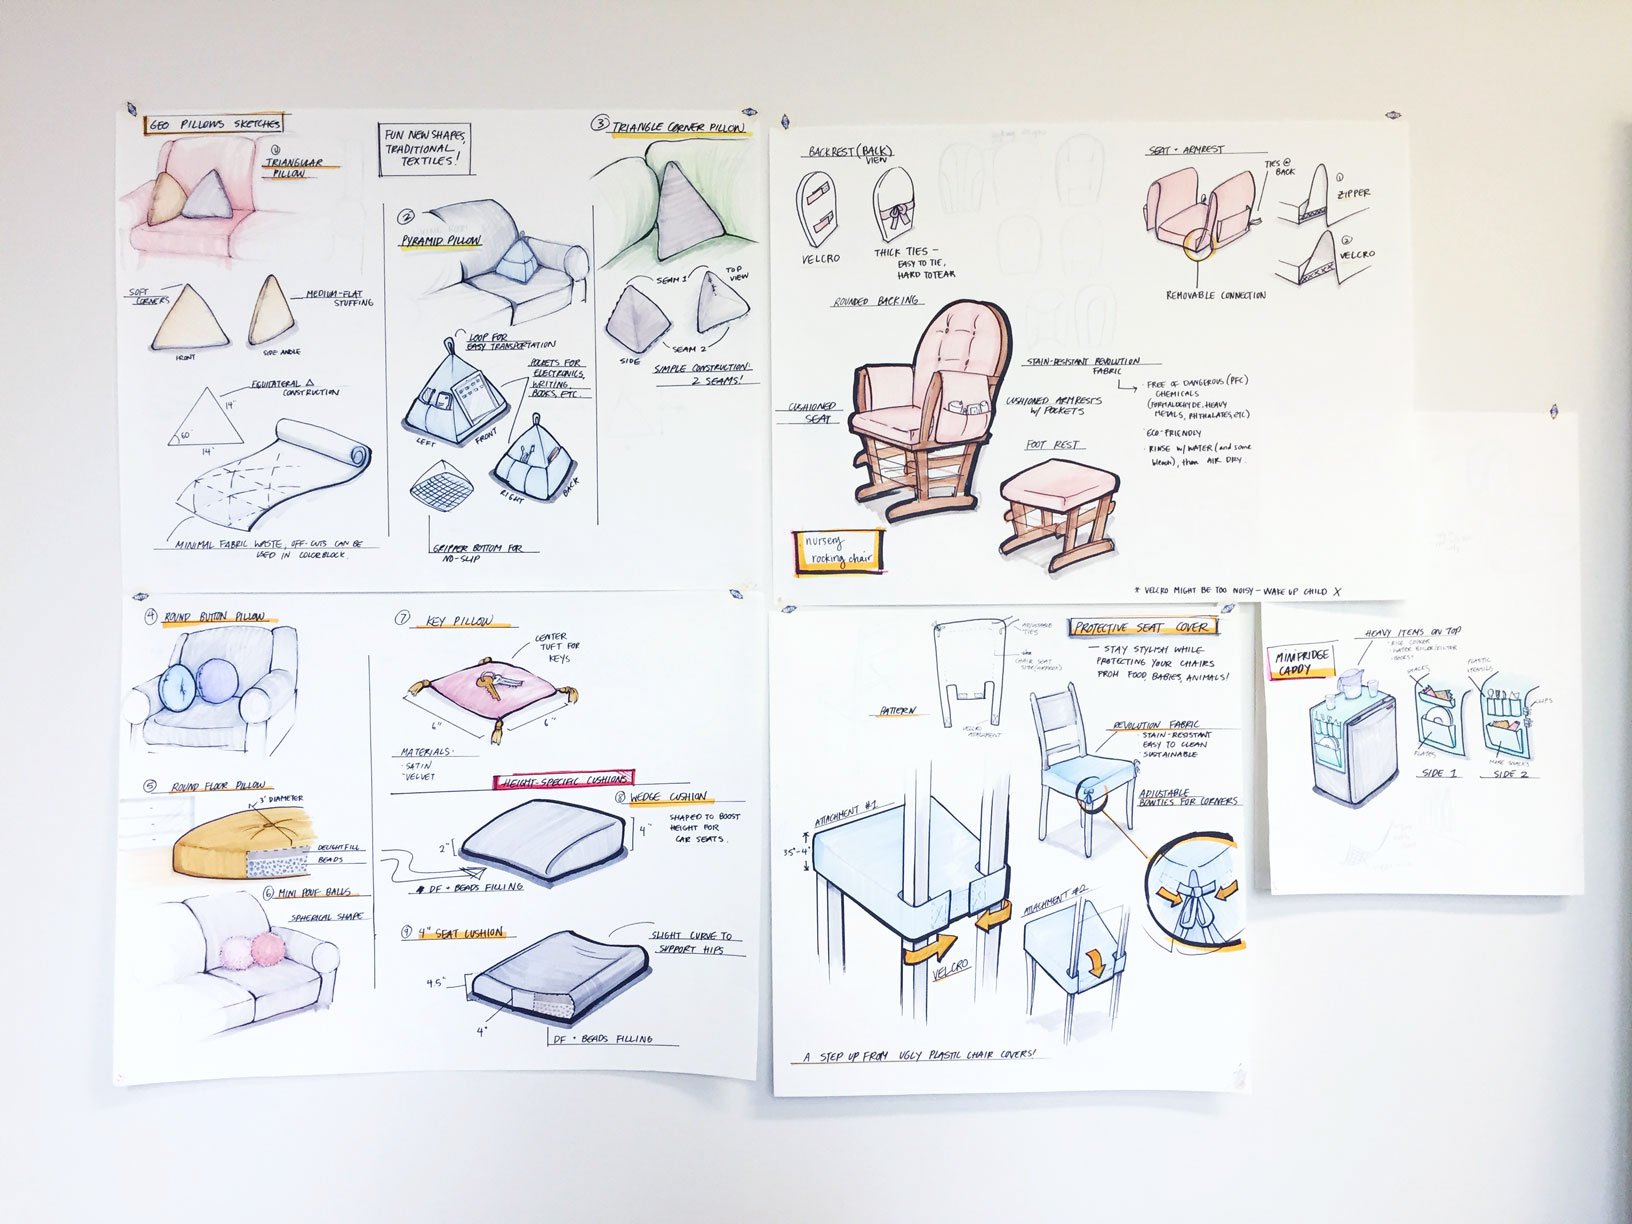 GEO PILLOWS SKETCHES
FUN NEW SHAPES,
TRADITIONAL
TEXTILES!
1
TRIANGULAR
PILLOW
SOFT
CORNERS
MEDIUM-FLAT
STUFFING
FRONT
SIDE ANGLE
EQUILATERAL △
CONSTRUCTION
14"
60°
14"
MINIMAL FABRIC WASTE, OFF-CUTS CAN BE
USED IN COLORBLOCK.
2
PYRAMID PILLOW
LOOP FOR
EASY TRANSPORTATION
POCKETS FOR
ELECTRONICS,
WRITING,
BOOKS, ETC.
LEFT
FRONT
RIGHT
BACK
GRIPPER BOTTOM FOR
NO-SLIP
3 TRIANGLE CORNER PILLOW
SEAM 1
TOP
VIEW
SIDE
SEAM 2
SIMPLE CONSTRUCTION:
2 SEAMS!
4 ROUND BUTTON PILLOW
5 ROUND FLOOR PILLOW
3' DIAMETER
DELIGHTFILL
BEADS
6 MINI POUF BALLS
SPHERICAL SHAPE
7 KEY PILLOW
CENTER
TUFT FOR
KEYS
6"
6"
MATERIALS:
· SATIN
· VELVET
HEIGHT-SPECIFIC CUSHIONS
8 WEDGE CUSHION
SHAPED TO BOOST
HEIGHT FOR
CAR SEATS.
4"
2"
DF + BEADS FILLING
9 4" SEAT CUSHION
SLIGHT CURVE TO
SUPPORT HIPS
4.5"
4"
DF + BEADS FILLING
BACKREST (BACK)
VIEW
VELCRO
THICK TIES -
EASY TO TIE,
HARD TO TEAR
SEAT + ARMREST
TIES @
BACK
1
ZIPPER
2
VELCRO
REMOVABLE CONNECTION
ROUNDED BACKING
CUSHIONED
SEAT
STAIN-RESISTANT REVOLUTION
FABRIC
FREE OF DANGEROUS (PFC)
CHEMICALS
(FORMALDEHYDE, HEAVY
METALS, PHTHALATES, ETC)
· ECO-FRIENDLY
· RINSE W/ WATER (and some
bleach), then AIR DRY
CUSHIONED ARMRESTS
W/ POCKETS
FOOT REST
nursery
rocking chair
* VELCRO MIGHT BE TOO NOISY - WAKE UP CHILD X
PROTECTIVE SEAT COVER
— STAY STYLISH WHILE
PROTECTING YOUR CHAIRS
FROM FOOD, BABIES, ANIMALS!
ADJUSTABLE
TIES
CHAIR SEAT
PATTERN
VELCRO
ATTACHMENT
REVOLUTION FABRIC
· STAIN-RESISTANT
EASY TO CLEAN
· SUSTAINABLE
ADJUSTABLE
BOWTIES FOR CORNERS
ATTACHMENT #1
3.5"-4"
VELCRO
ATTACHMENT #2
A STEP UP FROM UGLY PLASTIC CHAIR COVERS!
MINIFRIDGE
CADDY
HEAVY ITEMS ON TOP
· RICE COOKER
SNACKS
PLATES
SIDE 1
PLASTIC
UTENSILS
CLIPS
MORE SNACKS
SIDE 2